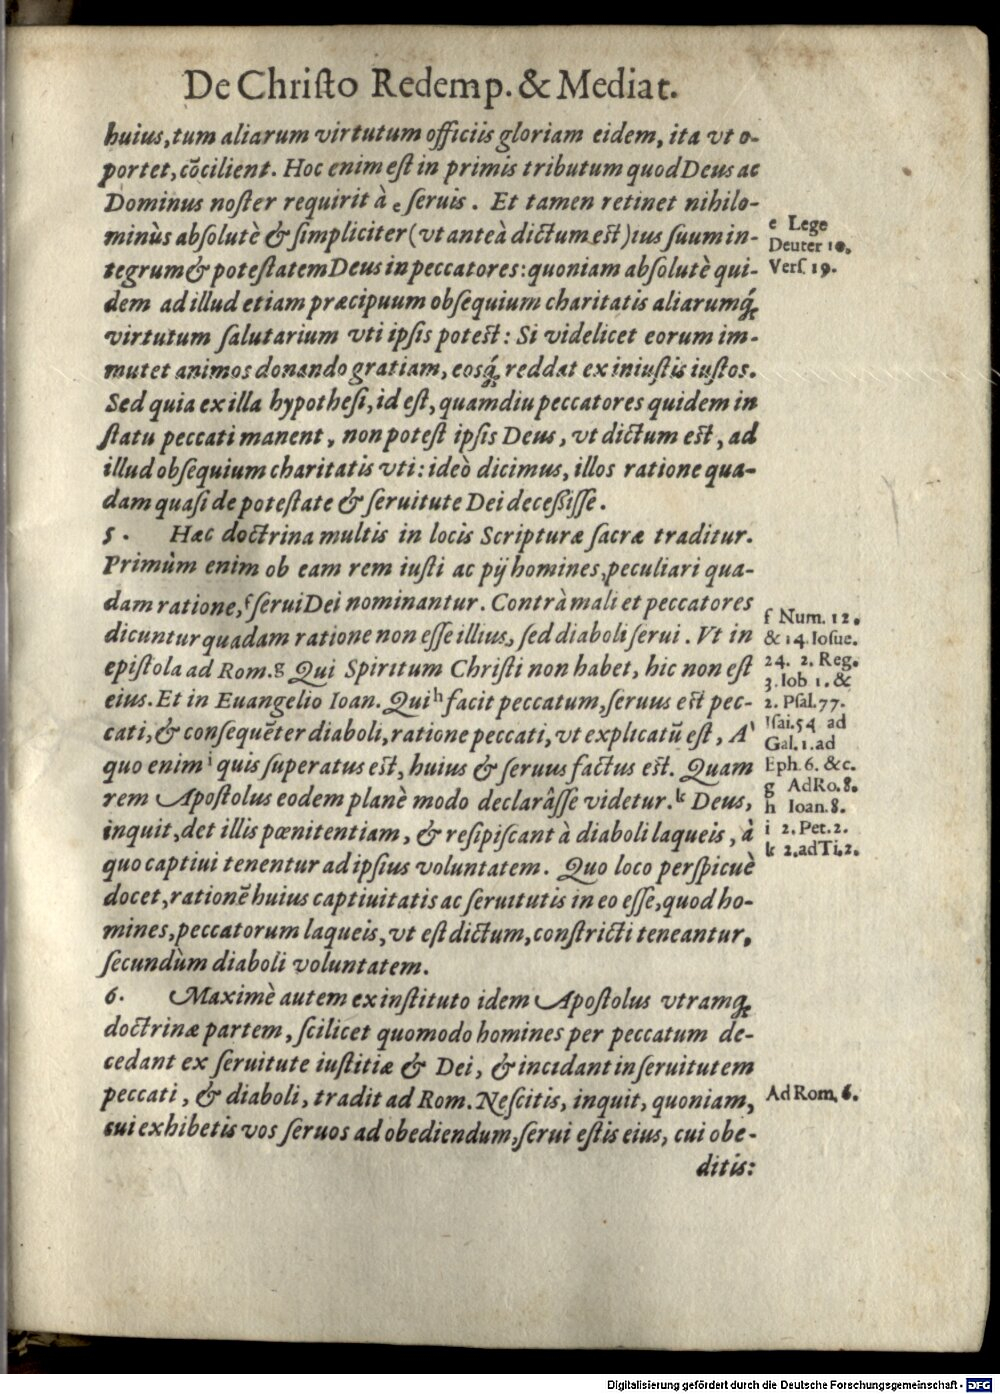 De Christo Redemp. & Mediat.
huius, tum aliarum virtutum officiis gloriam eidem, ita vt o-
portet, cōcilient. Hoc enim est in primis tributum quod Deus ac
Dominus noster requirit à e seruis. Et tamen retinet nihilo-
minùs absolutè & simpliciter (vt anteà dictum est) ius suum in-
tegrum & potestatem Deus in peccatores: quoniam absolutè qui-
dem ad illud etiam præcipuum obsequium charitatis aliarumq́;
virtutum salutarium vti ipsis potest: Si videlicet eorum im-
mutet animos donando gratiam, eosq́; reddat ex iniustis iustos.
Sed quia ex illa hypothesi, id est, quamdiu peccatores quidem in
statu peccati manent, non potest ipsis Deus, vt dictum est, ad
illud obsequium charitatis vti: ideò dicimus, illos ratione qua-
dam quasi de potestate & seruitute Dei decessisse.
5. Hæc doctrina multis in locis Scripturæ sacræ traditur.
Primùm enim ob eam rem iusti ac pij homines, peculiari qua-
dam ratione, f serui Dei nominantur. Contrà mali et peccatores
dicuntur quadam ratione non esse illius, sed diaboli serui. Vt in
epistola ad Rom. g Qui Spiritum Christi non habet, hic non est
eius. Et in Euangelio Ioan. Qui h facit peccatum, seruus est pec-
cati, & consequēter diaboli, ratione peccati, vt explicatū est, A'
quo enim i quis superatus est, huius & seruus factus est. Quam
rem Apostolus eodem planè modo declarâsse videtur. k Deus,
inquit, det illis pœnitentiam, & resipiscant à diaboli laqueis, à
quo captiui tenentur ad ipsius voluntatem. Quo loco perspicuè
docet, rationē huius captiuitatis ac seruitutis in eo esse, quod ho-
mines, peccatorum laqueis, vt est dictum, constricti teneantur,
secundùm diaboli voluntatem.
6. Maximè autem ex instituto idem Apostolus vtramq;
doctrinæ partem, scilicet quomodo homines per peccatum de-
cedant ex seruitute iustitiæ & Dei, & incidant in seruitutem
peccati, & diaboli, tradit ad Rom. Nescitis, inquit, quoniam,
cui exhibetis vos seruos ad obediendum, serui estis eius, cui obe-
ditis:
e Lege
Deuter 10.
Vers. 19.
f Num. 12.
& 14. Iosue.
24. 2. Reg.
3. Iob 1. &
2. Psal. 77.
Isai. 54 ad
Gal. 1. ad
Eph. 6. &c.
g Ad Ro. 8.
h Ioan. 8.
i 2. Pet. 2.
k 2. ad Ti. 2.
Ad Rom. 6.
Digitalisierung gefördert durch die Deutsche Forschungsgemeinschaft - DFG